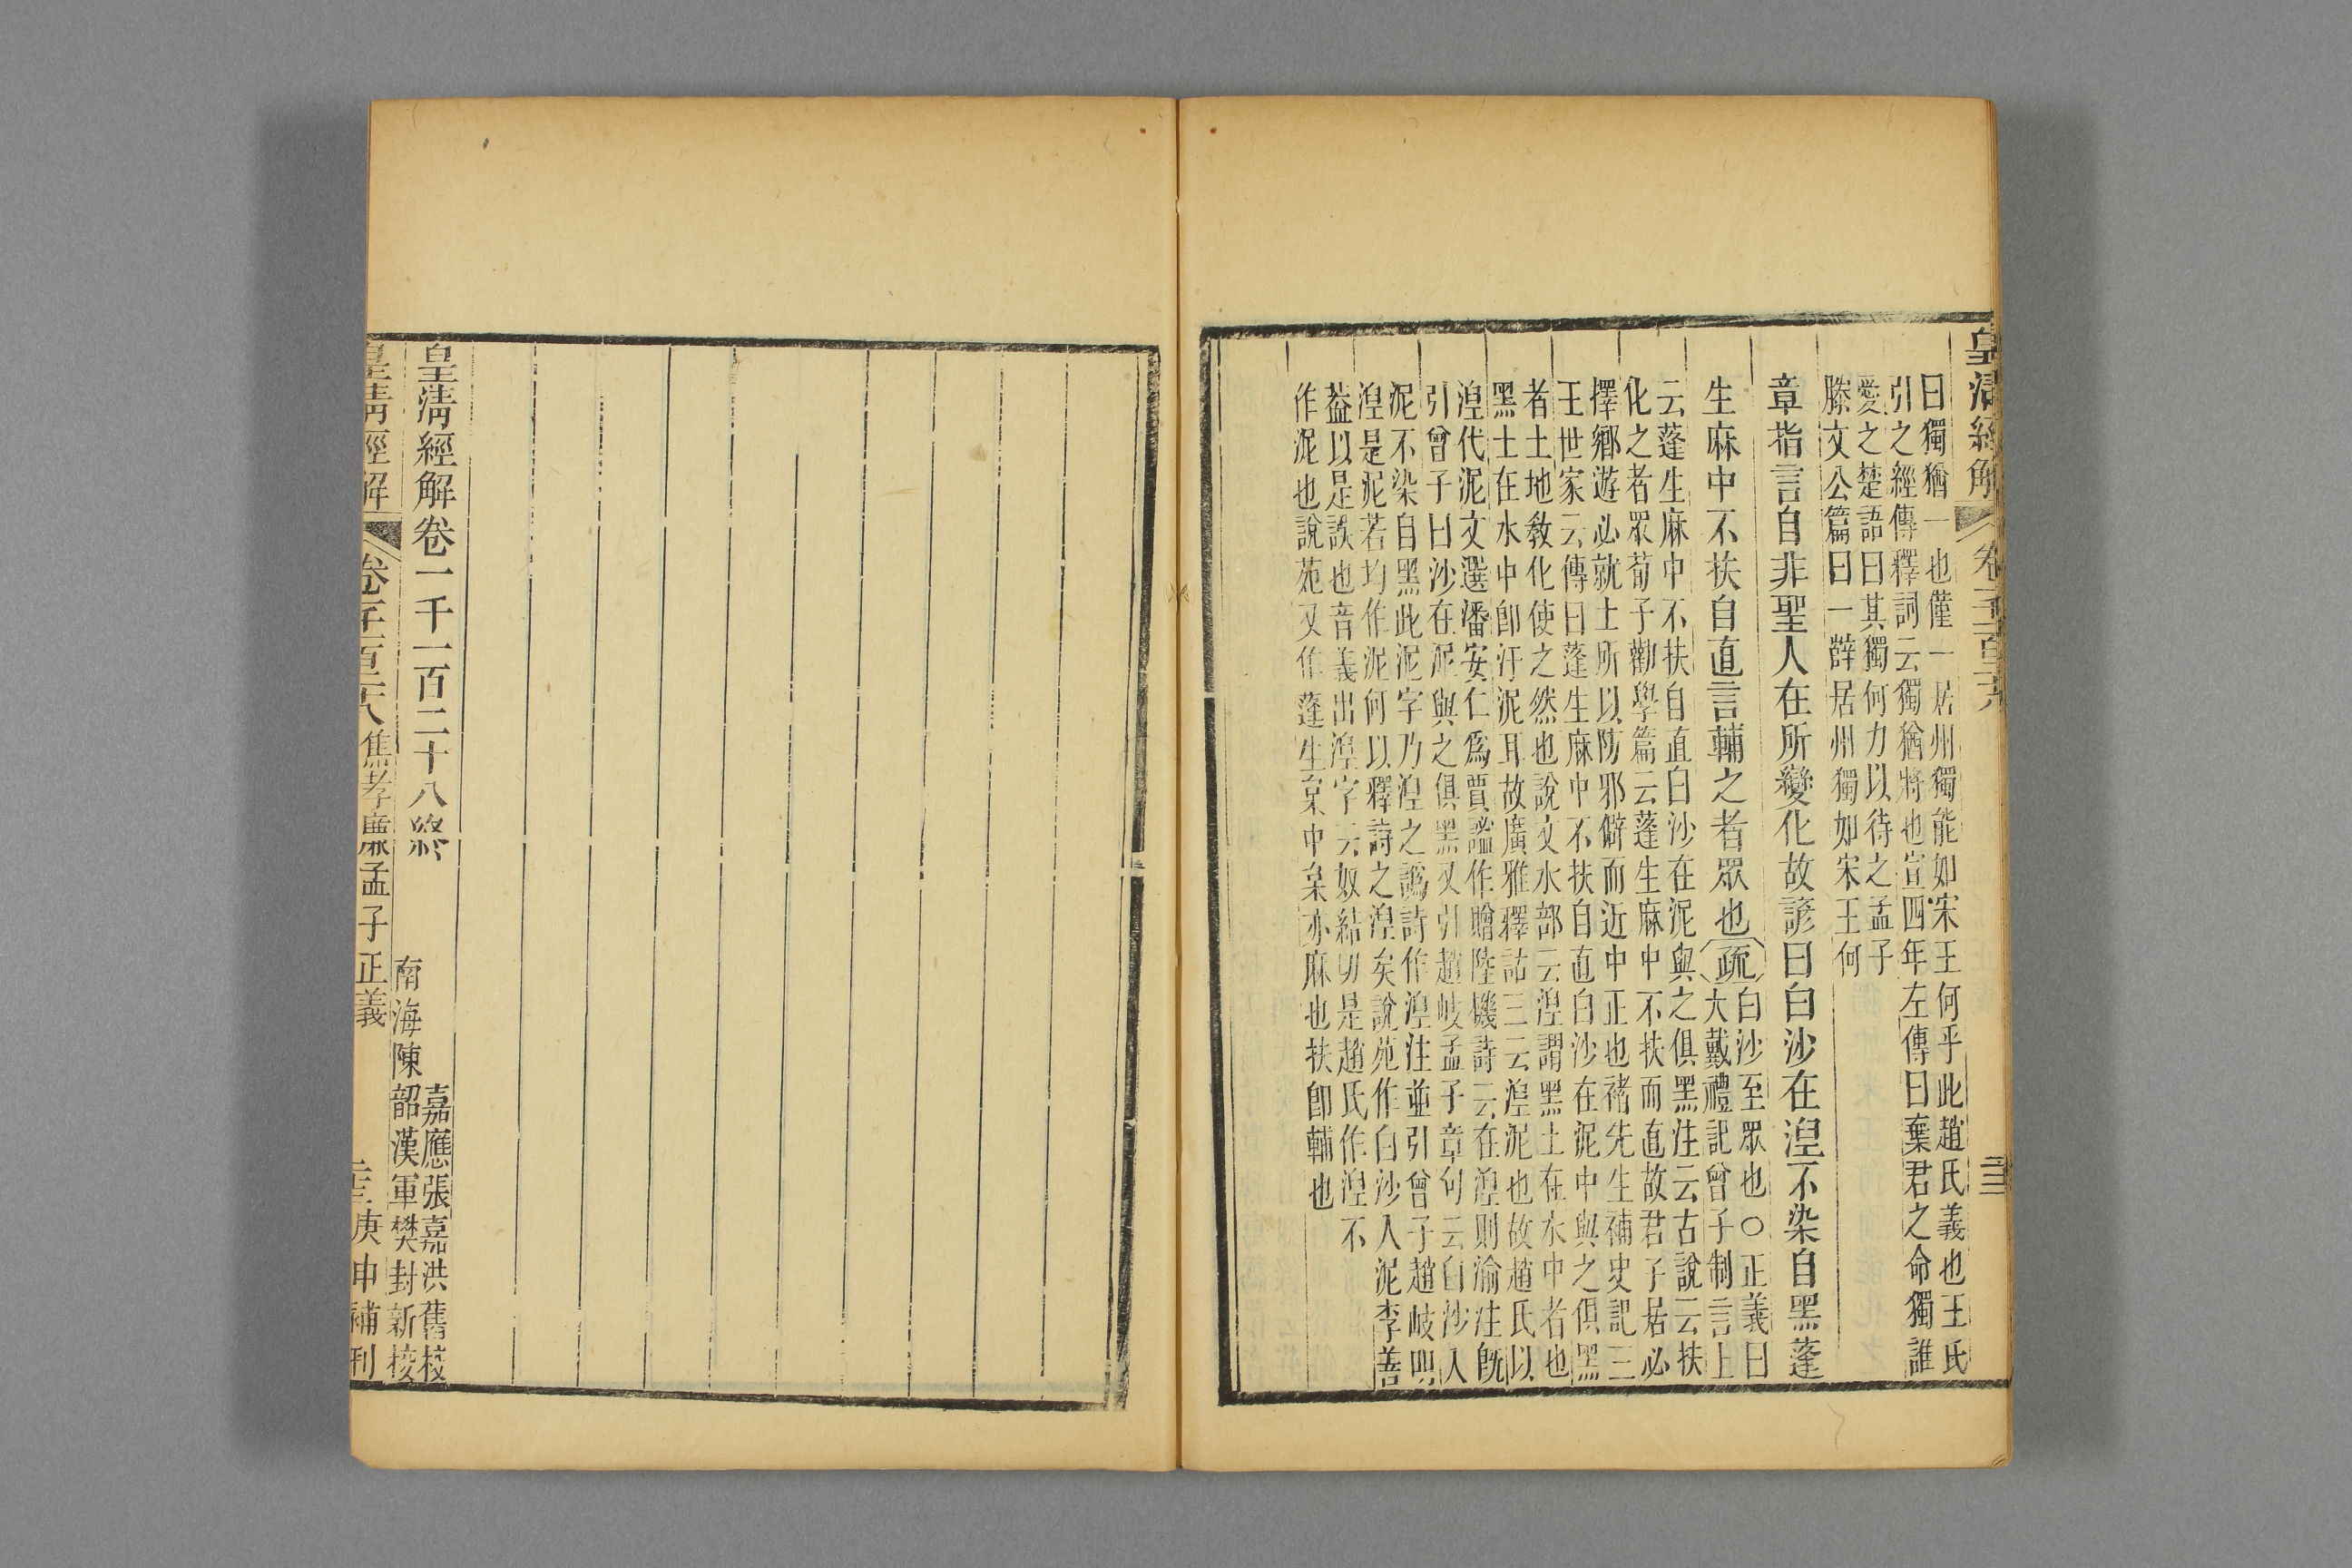 皇清經解
曰獨猶一也僅一居州獨能如宋王何乎此趙氏義也王氏
引之經傳釋詞云獨猶將也宣四年左傳曰棄君之命獨誰
愛之楚語曰其獨何力以待之孟子
滕文公篇曰一薛居州獨如宋王何
章指言自非聖人在所變化故諺曰白沙在湼不染自黑蓬
生麻中不扶自直言輔之者眾也疏
白沙至眾也○正義曰
大戴禮記曾子制言上
云蓬生麻中不扶自直白沙在泥與之俱黑注云古說云扶
化之者眾荀子勸學篇云蓬生麻中不扶而直故君子居必
擇鄉遊必就士所以防邪僻而近中正也褚先生補史記三
王世家云傳曰蓬生麻中不扶自直白沙在泥中與之俱黑
者土地教化使之然也說文水部云湼謂黑土在水中者也
黑土在水中卽汙泥耳故廣雅釋詁三云湼泥也故趙氏以
湼代泥文選潘安仁爲賈謐作贈陸機詩云在湼則渝注旣
引曾子曰沙在泥與之俱黑又引趙岐孟子章句云白沙入
泥不染自黑此泥字乃湼之譌詩作湼注並引曾子趙岐明
湼是泥若均作泥何以釋詩之湼矣說苑作白沙入泥李善
葢以是誤也音義出湼字云奴結切是趙氏作湼不
作泥也說苑又作蓬生枲中枲亦麻也扶卽輔也
皇清經解卷一千一百二十八終
嘉應張嘉洪舊校
南海陳韶漢軍樊封新校
皇清經解
焦孝廉孟子正義
庚申補刊